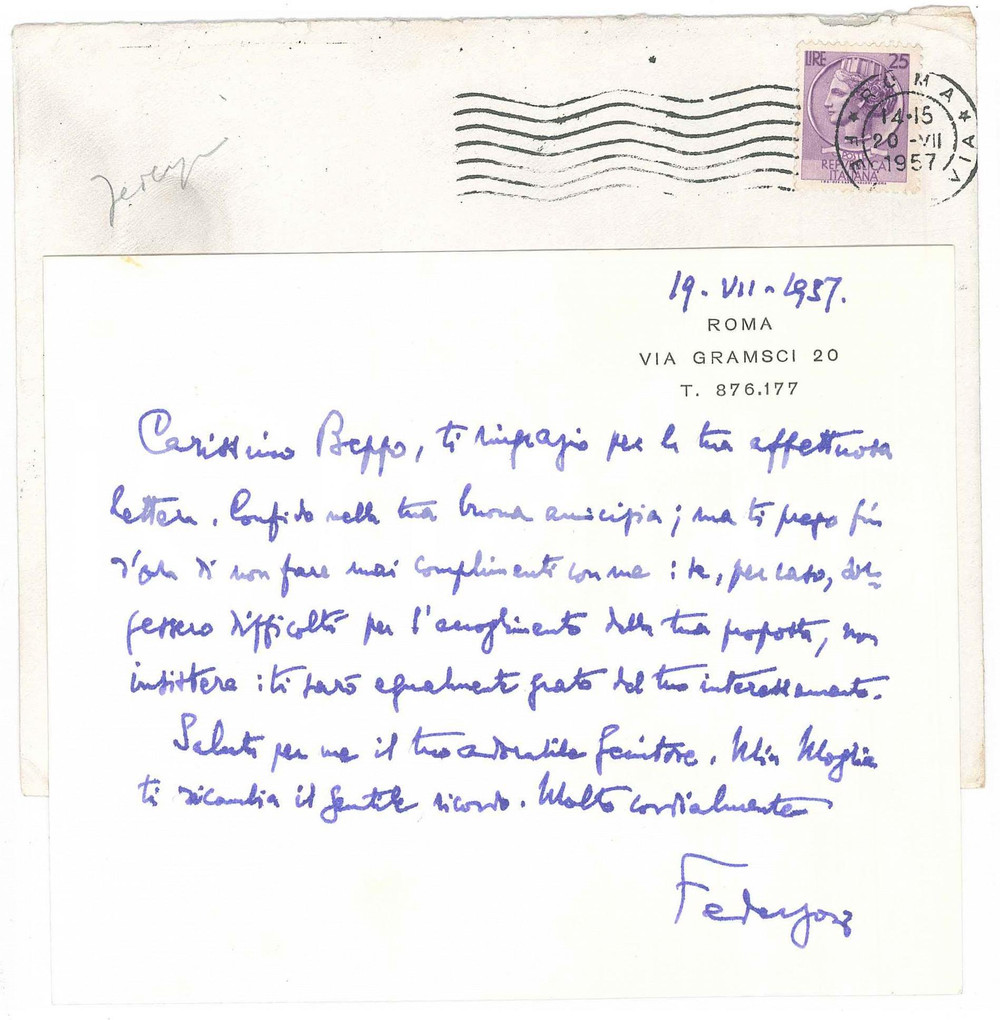 LIRE 25
ROMA
14·15
20 -VII
1957
FERROVIA
REPUBBLICA
ITALIANA
19 - VII - 1957.
ROMA
VIA GRAMSCI 20
T. 876.177
Carissimo Beppo, ti ringrazio per la tua affettuosa
lettera. Confido nella tua buona amicizia; ma ti prego fin
d'ora di non fare mai complimenti con me: se, per caso, sor=
gessero difficoltà per l'accoglimento della tua proposta, non
insistere: ti sarò egualmente grato del tuo interessamento.
Saluta per me il tuo adorabile genitore. Mia Moglie
ti ricambia il gentile ricordo. Molto cordialmente
Federzoni